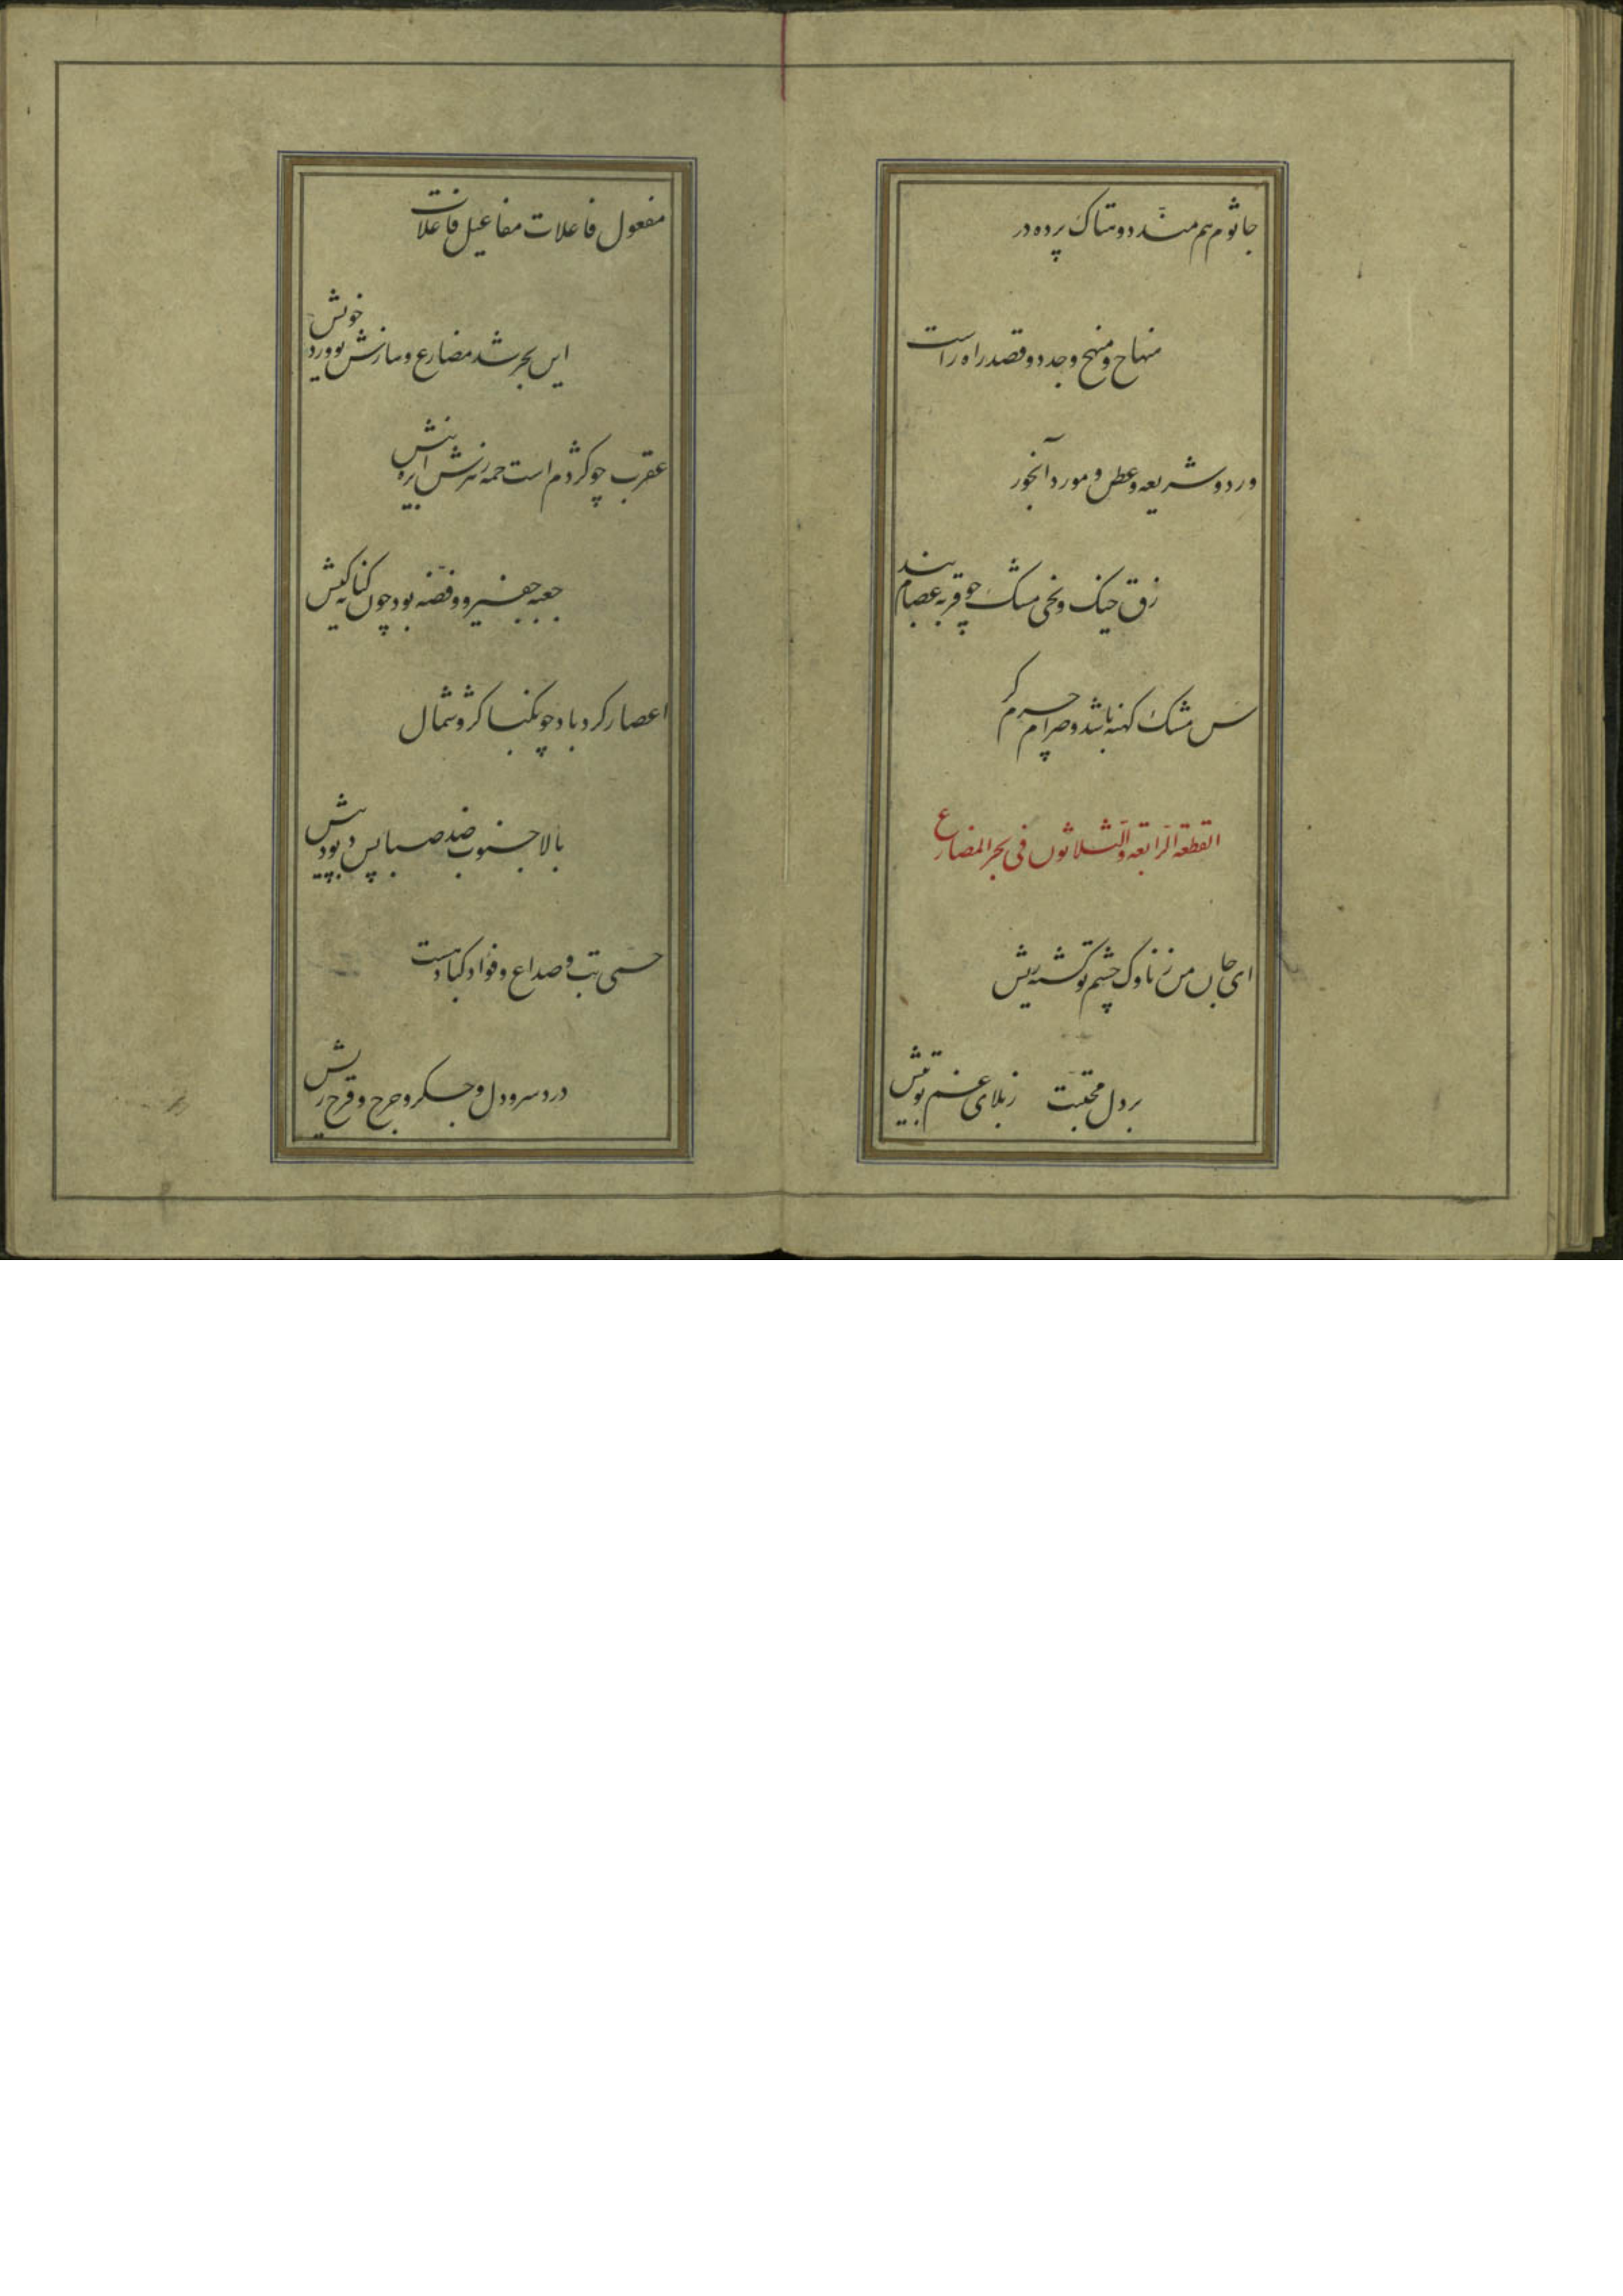 جاثوم هم مند دو هتاک پرده در
منهاج و منهج و جدد و قصد راه راست
ورد و شریعه و عطن و مورد آبخور
زق خیک و نحی مشک چو قربه عصام بند
شن مشک کهنه باشد و صرام چرم گر
القطعة الرابعة والثلاثون فی بحر المضارع
ای جان من ز ناوک چشم تو گشته ریش
بر دل محبتت ز بلای غم تو بیش
مفعول فاعلات مفاعیل فاعلات
این بحر شد مضارع و سازش تو ورد خویش
عقرب چو کژدم است حمه زهرش ابره نیش
جعبه جفیر و وفضه بود چون کنانه کیش
اعصار گردباد چو نکبا کژ و شمال
بالا جنوب ضد صبا پس دبور پیش
حمی تب و صداع و فؤاد و کباد هست
درد سر و دل و جگر و جرح و قرح ریش